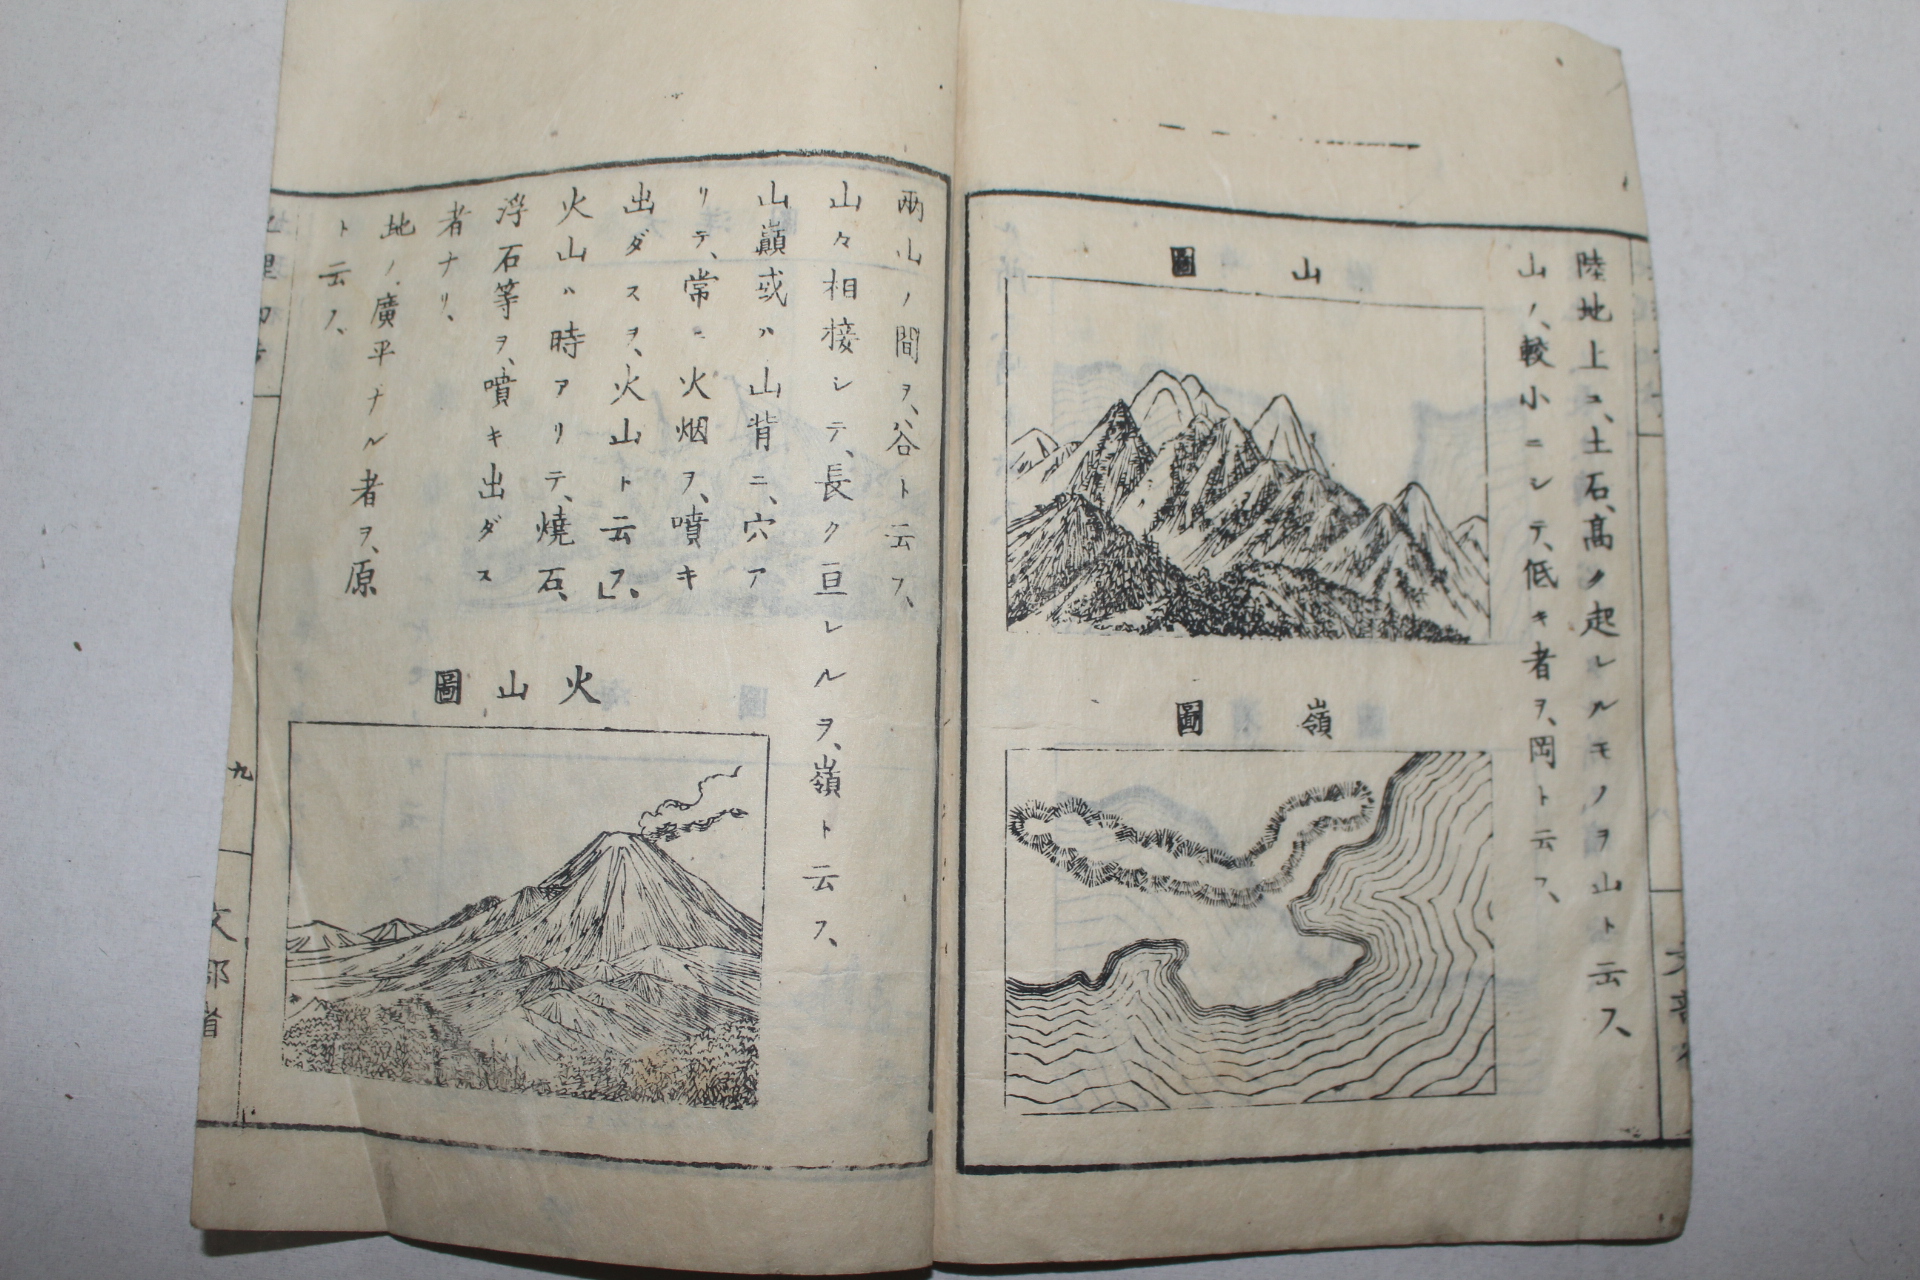 陸地上ニ、土石、高ク起レルモノヲ山ト云フ、
山ノ、較小ニシテ、低キ者ヲ、岡ト云フ、
山圖
嶺圖
両山ノ間ヲ、谷ト云フ、
山々相接シテ、長ク亘レルヲ、嶺ト云フ、
山巓或ハ山背ニ、穴ア
リテ、常ニ火烟ヲ、噴キ
出ダスヲ、火山ト云フ」、
火山ハ時アリテ、燒石、
浮石等ヲ、噴キ出ダス
者ナリ、
地ノ、廣平ナル者ヲ、原
ト云フ、
火山圖
九
文部省